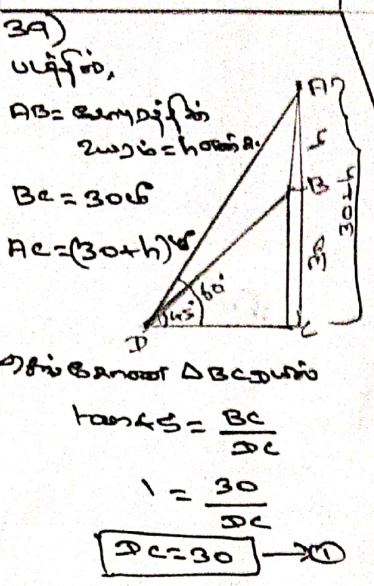 39)
படத்தில்,
AB = கோபுரத்தின்
உயரம் = h என்க.
BC = 30மீ
AC = (30+h)மீ
A
h
B
30
30+h
60°
45°
D
C
செங்கோண ΔBCD யில்
tan45 = BC/DC
1 = 30/DC
DC = 30 → ①